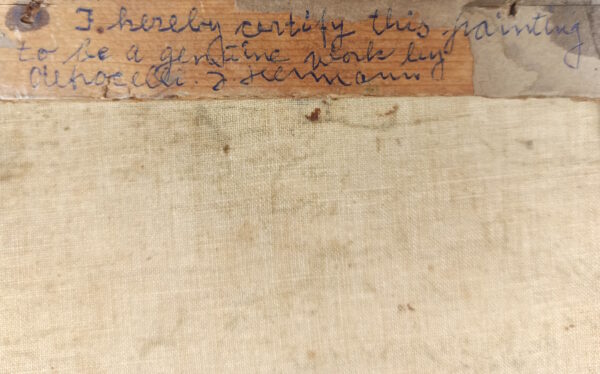 I hereby certify this painting
to be a genuine work by
Hermann